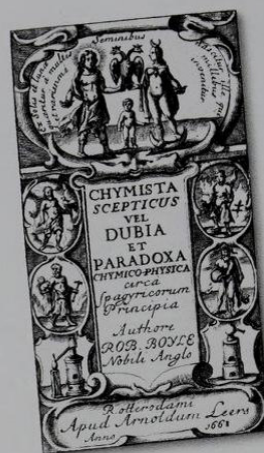 Seminibus
CHYMISTA
SCEPTICUS
VEL
DUBIA
ET
PARADOXA
CHYMICO-PHYSICA
circa
Spagyricorum
Principia
Authore
ROB. BOYLE
Nobili Anglo
Rotterodami
Apud Arnoldum Leers
Anno 1668